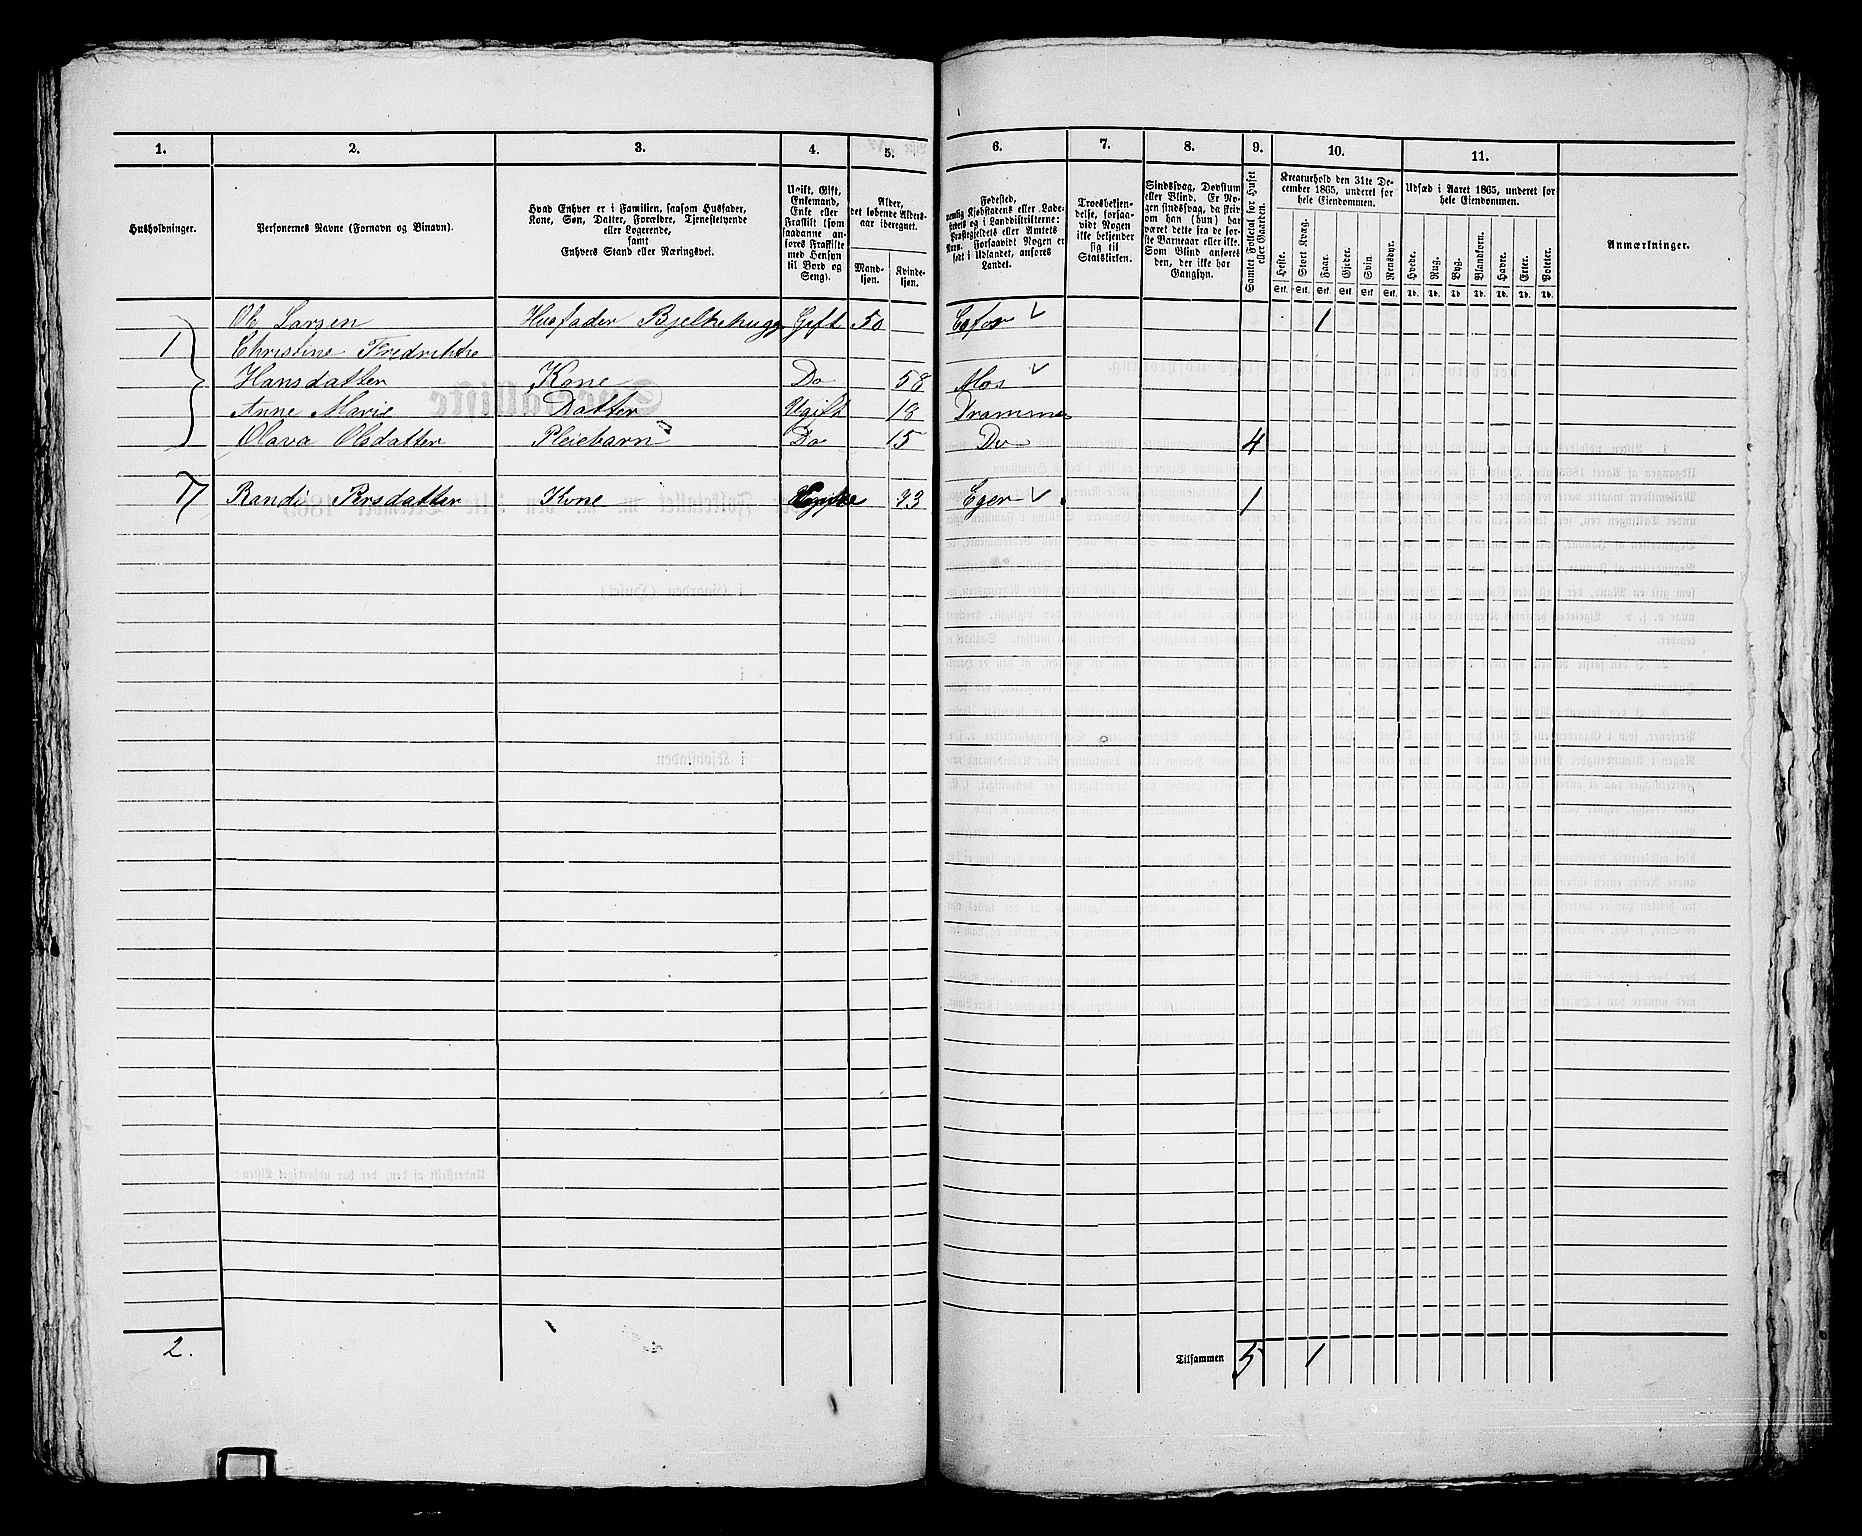 1. 2. 3. 4. 5. 6. 7. 8. 9. 10. 11.
Husholdninger.
Personernes Navne (Fornavn og Binavn).
Hvad Enhver er i Familien, saasom Husfader,
Kone, Søn, Datter, Forældre, Tjenestetyende
eller Logerende,
samt
Enhvers Stand eller Næringsvei.
Ugift, Gift,
Enkemand,
Enke eller
Fraskilt (som
saadanne an-
føres Fraskilte
med Hensyn
til Bord og
Seng).
Alder,
det løbende Alders-
aar iberegnet.
Mand-
kjøn.
Kvinde-
kjøn.
Fødested,
nemlig Kjøbstadens eller Lade-
stedets og i Landdistrikterne:
Præstegjeldets eller Amtets
Navn. Forsaavidt Nogen er
født i Udlandet, anføres
Landet.
Troesbekjen-
delse, forsaa-
vidt Nogen
ikke bekjender
sig til
Statskirken.
Sindssvag, Døvstum
eller Blind. Er No-
gen sindssvag, da skri-
ves om han (hun) har
været dette fra de før-
ste Barneaar eller ikke.
Som Blind anføres
den, der ikke har
Gangsyn.
Samlet Folketal for Huset
eller Gaarden.
Kreaturhold den 31te De-
cember 1865, underet for
hele Eiendommen.
Heste. Stort Kvæg. Faar. Gjeder. Svin. Rensdyr.
Stk. Stk. Stk. Stk. Stk. Stk.
Udsæd i Aaret 1865, underet for
hele Eiendommen.
Hvede. Rug. Byg. Blandkorn. Havre. Erter. Poteter.
Td. Td. Td. Td. Td. Td. Td.
Anmærkninger.
1 Ole Larsen Husfader Bjelkehugg Gift 50 1
Christine Fredrikke
Hansdatter Kone Do 58 Mos
Anne Marie Datter Ugift 18 Drammen
Olava Olsdatter Pleiebarn Do 15 Do 4
1 Randi Kone 93 Eger 1
2. Tilsammen 5 1